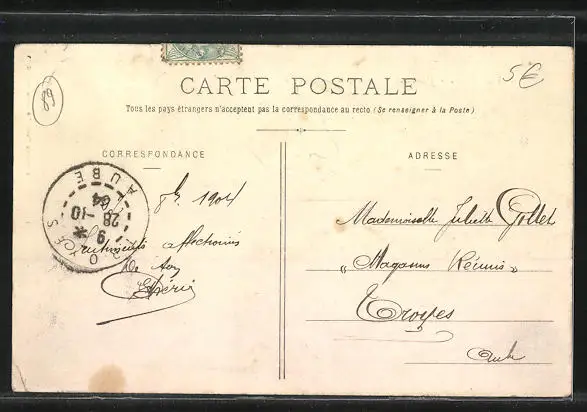 CARTE POSTALE
5€
89
Tous les pays étrangers n'acceptent pas la correspondance au recto (Se renseigner à la Poste)
CORRESPONDANCE
ADRESSE
TROYES
9
28-10
04
AUBE
1904
affectueux
Mademoiselle Juliette
« Magasins Réunis »
Troyes
Aube